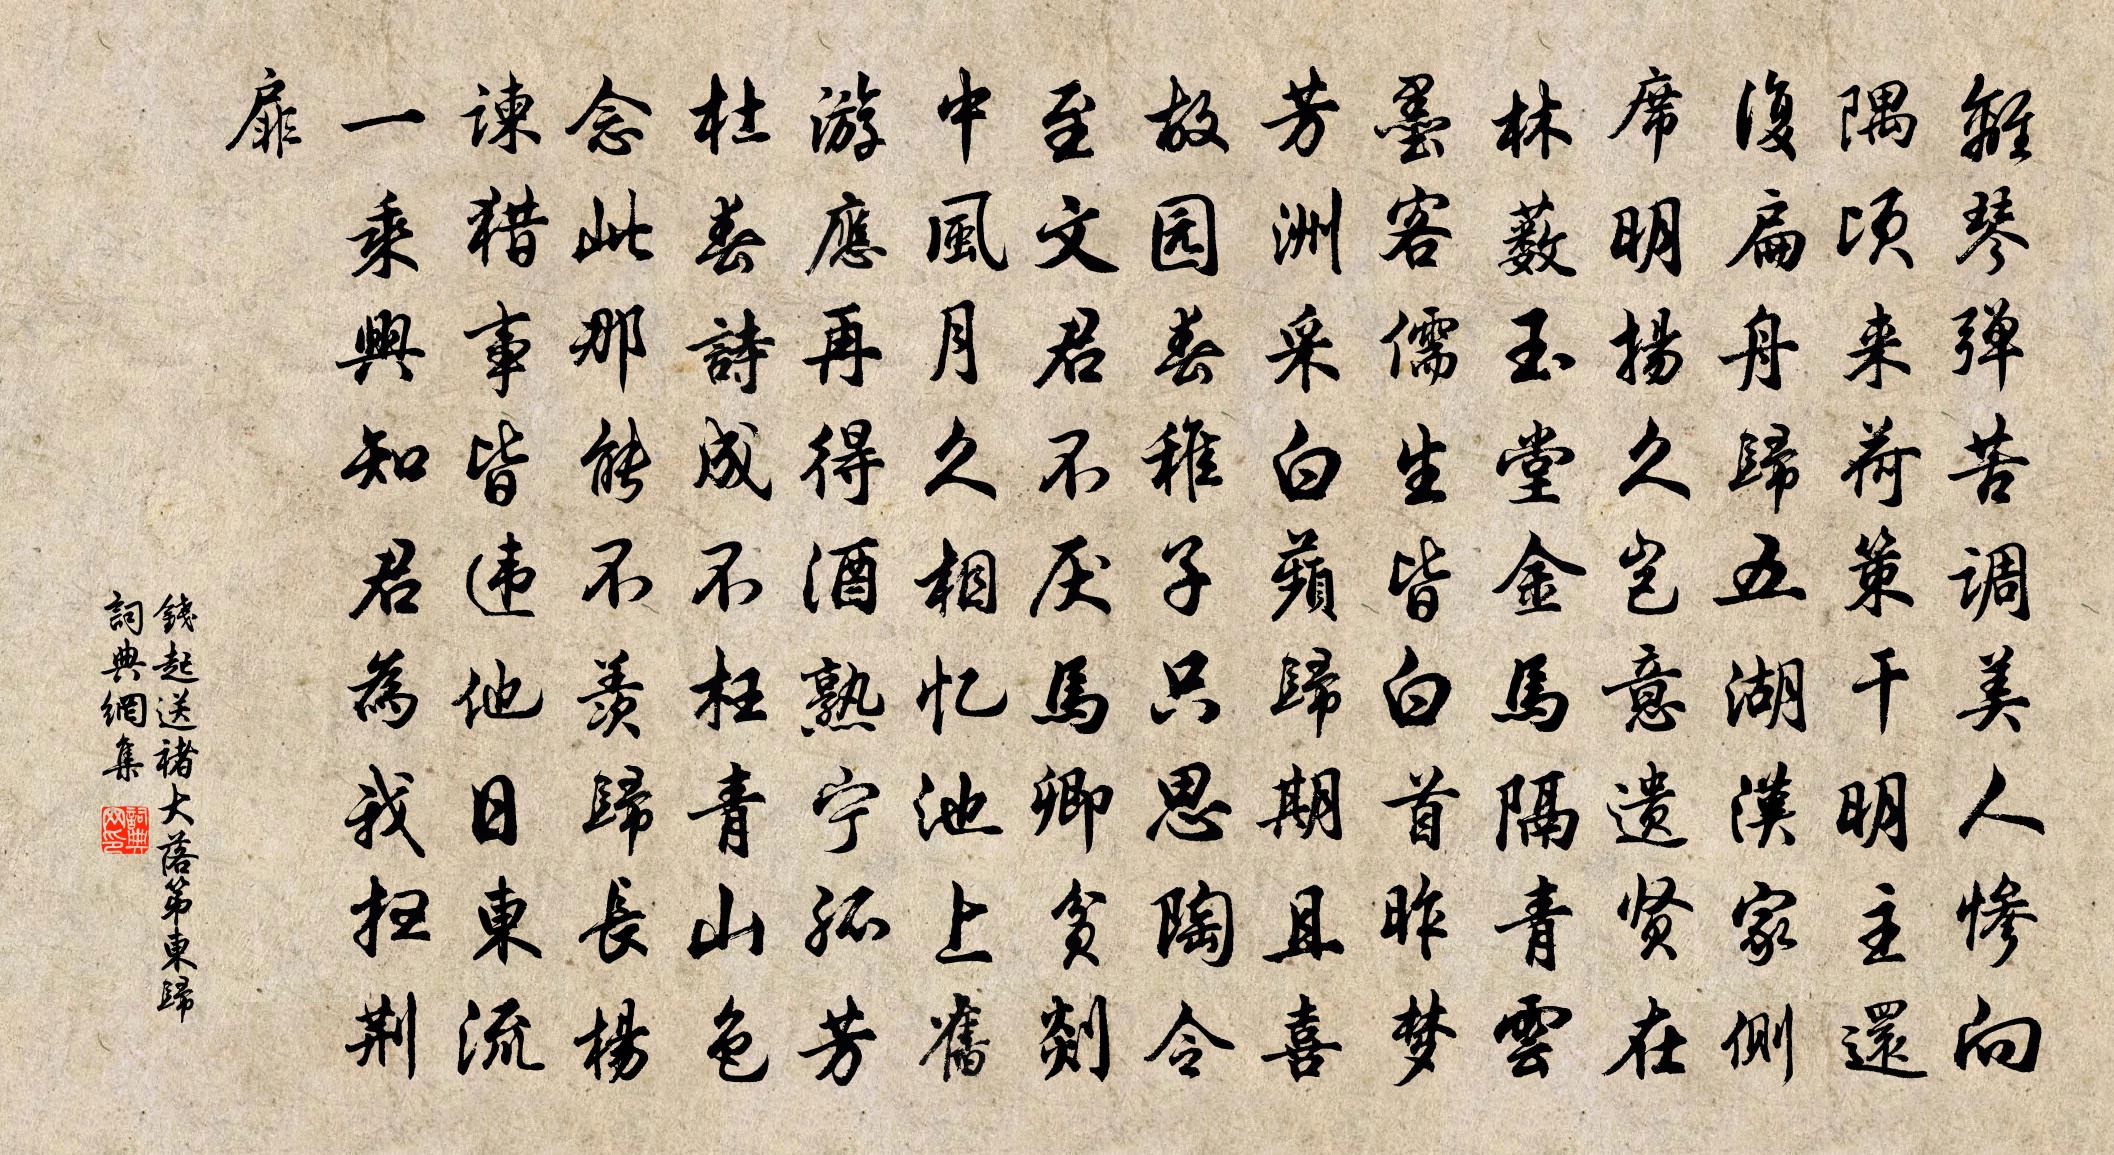 離琴弹苦调美人惨向
隅顷来荷策干明主還
復扁舟歸五湖漢家側
席明揚久岂意遗贤在
林薮玉堂金馬隔青雲
墨客儒生皆白首昨梦
芳洲采白蘋歸期且喜
故园春稚子只思陶令
至文君不厌馬卿貧剡
中風月久相忆池上舊
游應再得酒熟宁孤芳
杜春詩成不枉青山色
念此那能不羡歸長楊
谏猎事皆违他日東流
一乘興知君為我扫荆
扉
錢起送褚大落第東歸
詞典網集
詞典網印